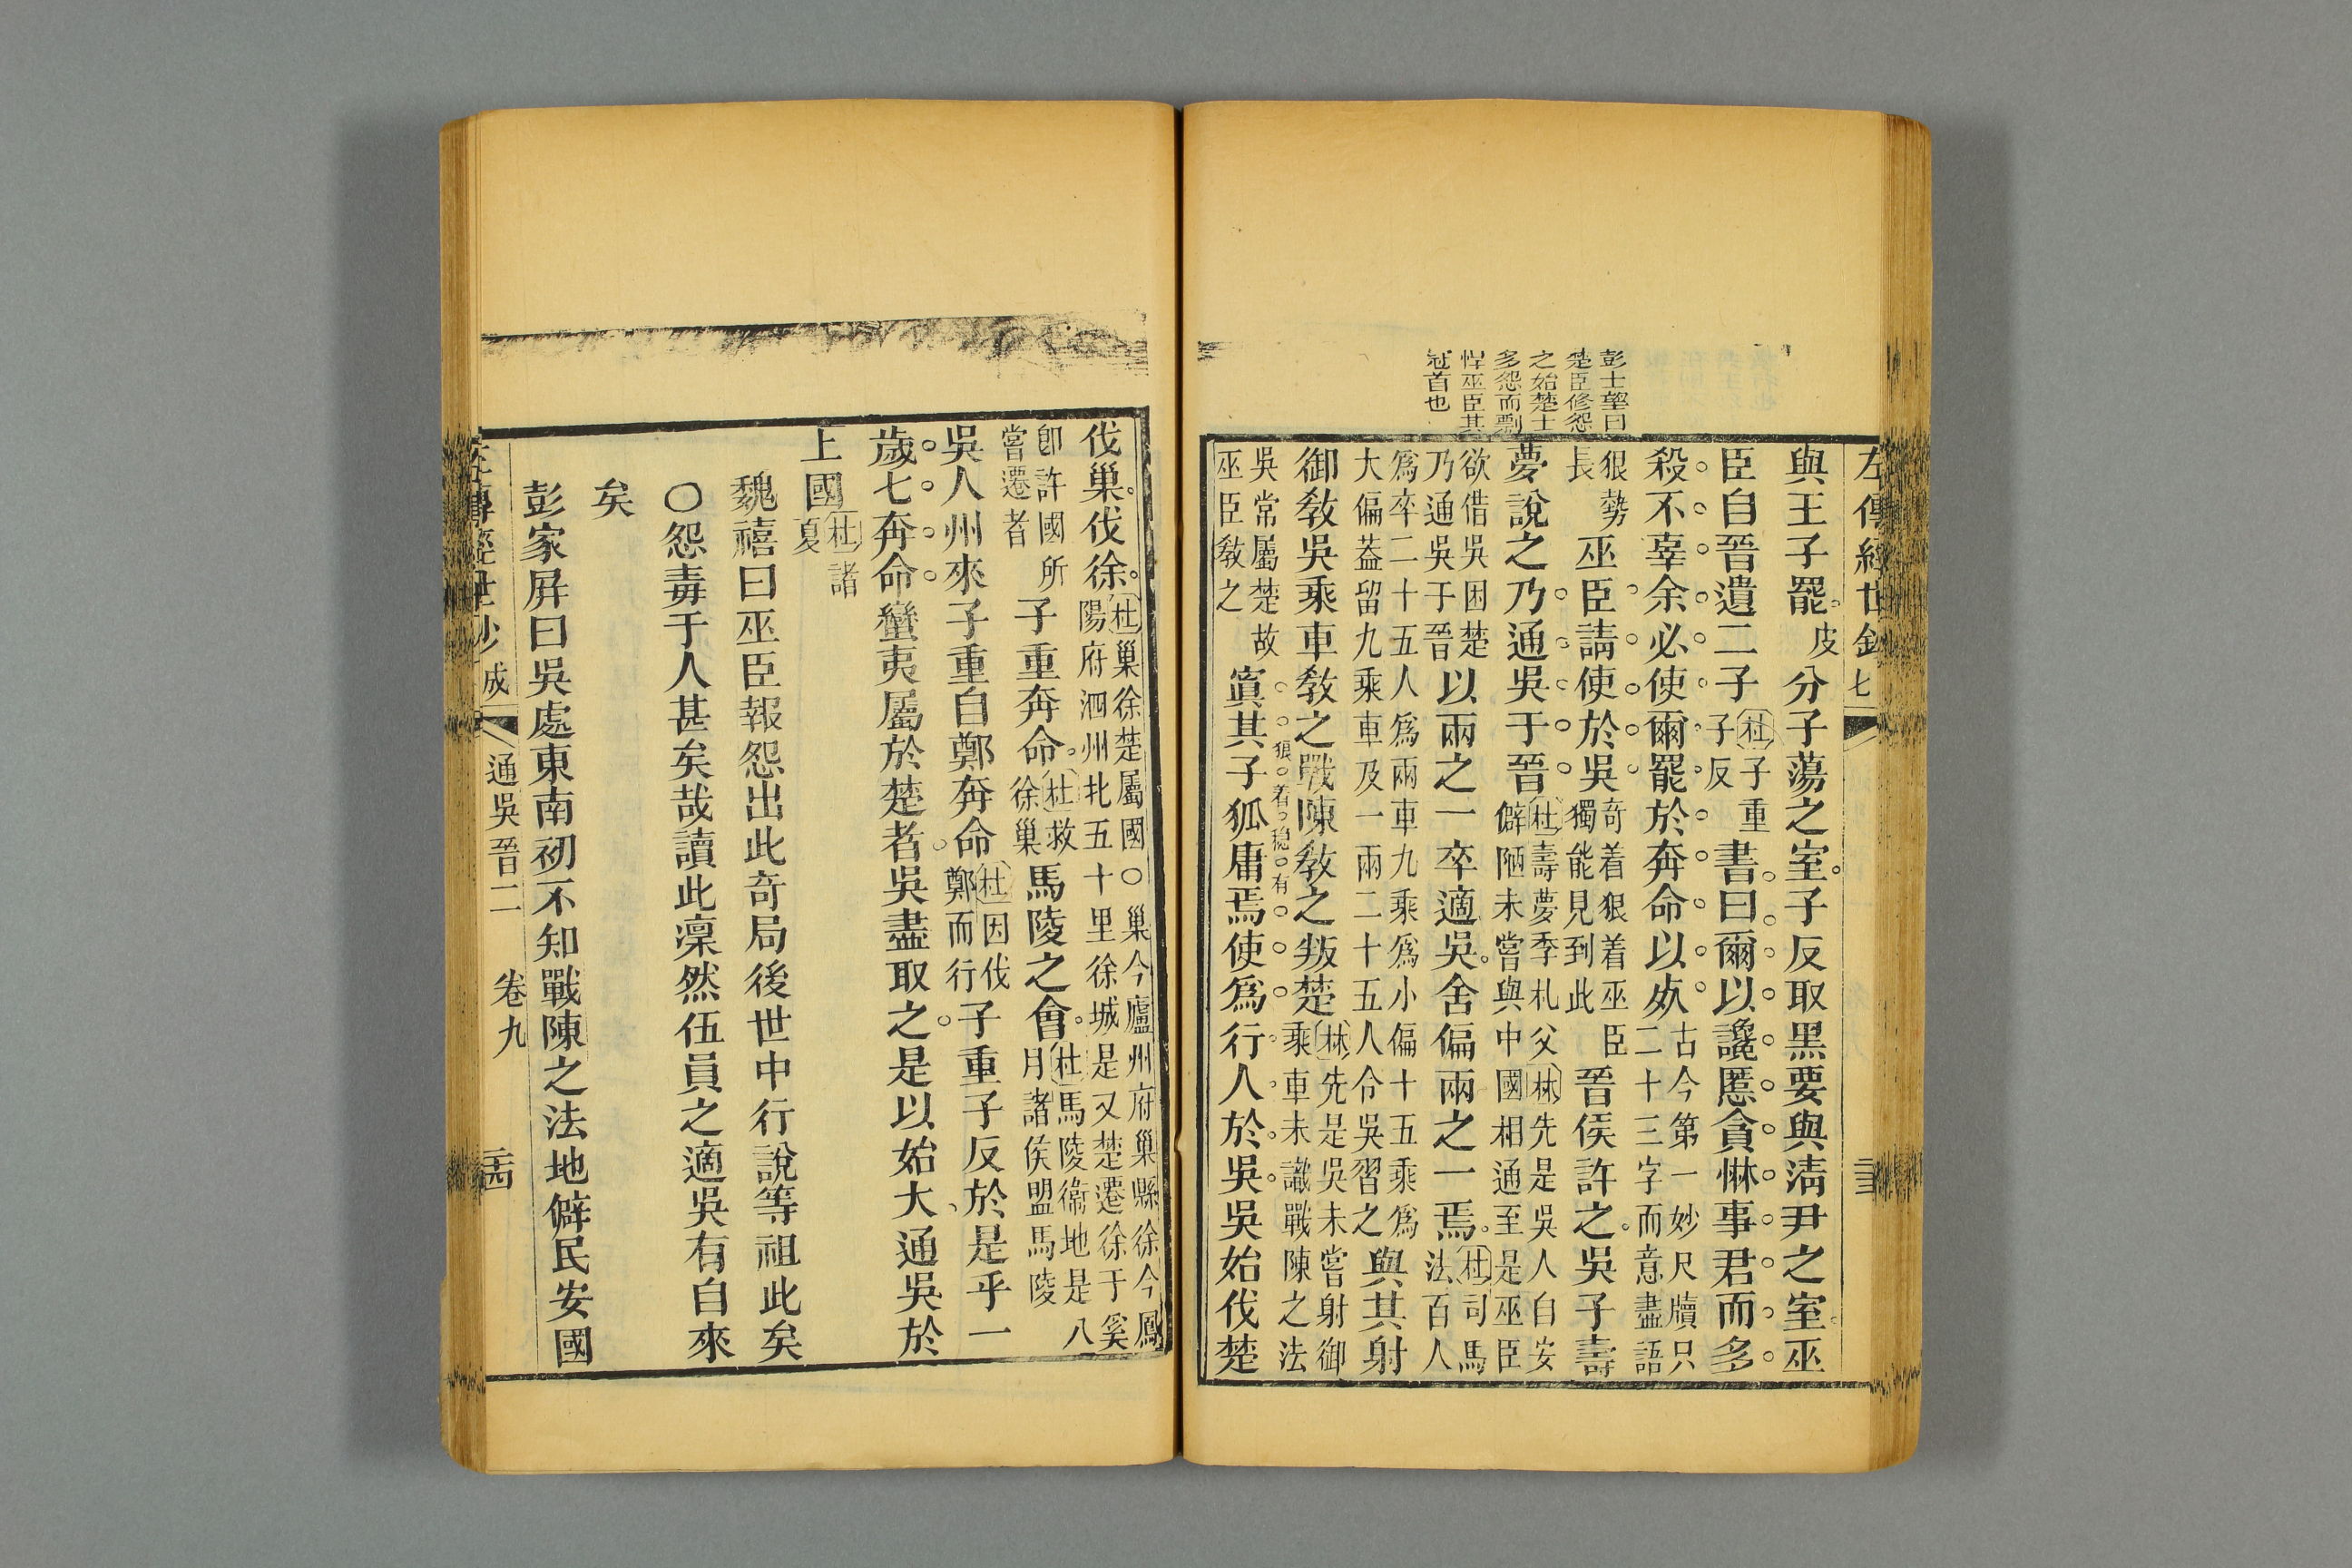 左傳經世鈔 七
彭士望曰
楚臣修怨
之始楚士
多怨而剽
悍巫臣其
冠首也
與王子罷皮分子蕩之室子反取黑要與淸尹之室巫
臣自晉遺二子杜子重子反書曰爾以讒慝貪惏事君而多
殺不辜余必使爾罷於奔命以死古今第一妙尺牘只二十三字而意盡語
狠勢長巫臣請使於吳奇着狠着巫臣獨能見到此晉侯許之吳子壽
夢說之乃通吳于晉杜壽夢季札父林先是吳人自安僻陋未嘗與中國相通至是巫臣
欲借吳困楚乃通吳于晉以兩之一卒適吳舍偏兩之一焉杜司馬法百人
爲卒二十五人爲兩車九乘爲小偏十五乘爲大偏葢留九乘車及一兩二十五人令吳習之與其射
御敎吳乘車敎之戰陳敎之叛楚林先是吳未嘗射御乘車未識戰陳之法
吳常屬楚故巫臣敎之寘其子狐庸焉使爲行人於吳吳始伐楚
狠着穩有
伐巢伐徐杜巢徐楚屬國○巢今廬州府巢縣徐今鳳陽府泗州北五十里徐城是又楚遷徐于奚
卽許國所嘗遷者子重奔命杜救徐巢馬陵之會杜馬陵衞地是八月諸侯盟馬陵
吳人州來子重自鄭奔命杜因伐鄭而行子重子反於是乎一
歲七奔命蠻夷屬於楚者吳盡取之是以始大通吳於
上國杜諸夏
魏禧曰巫臣報怨出此奇局後世中行說等祖此矣
○怨毒于人甚矣哉讀此凜然伍員之適吳有自來
矣
彭家屛曰吳處東南初不知戰陳之法地僻民安國
左傳經世鈔 成 通吳晉二 卷九